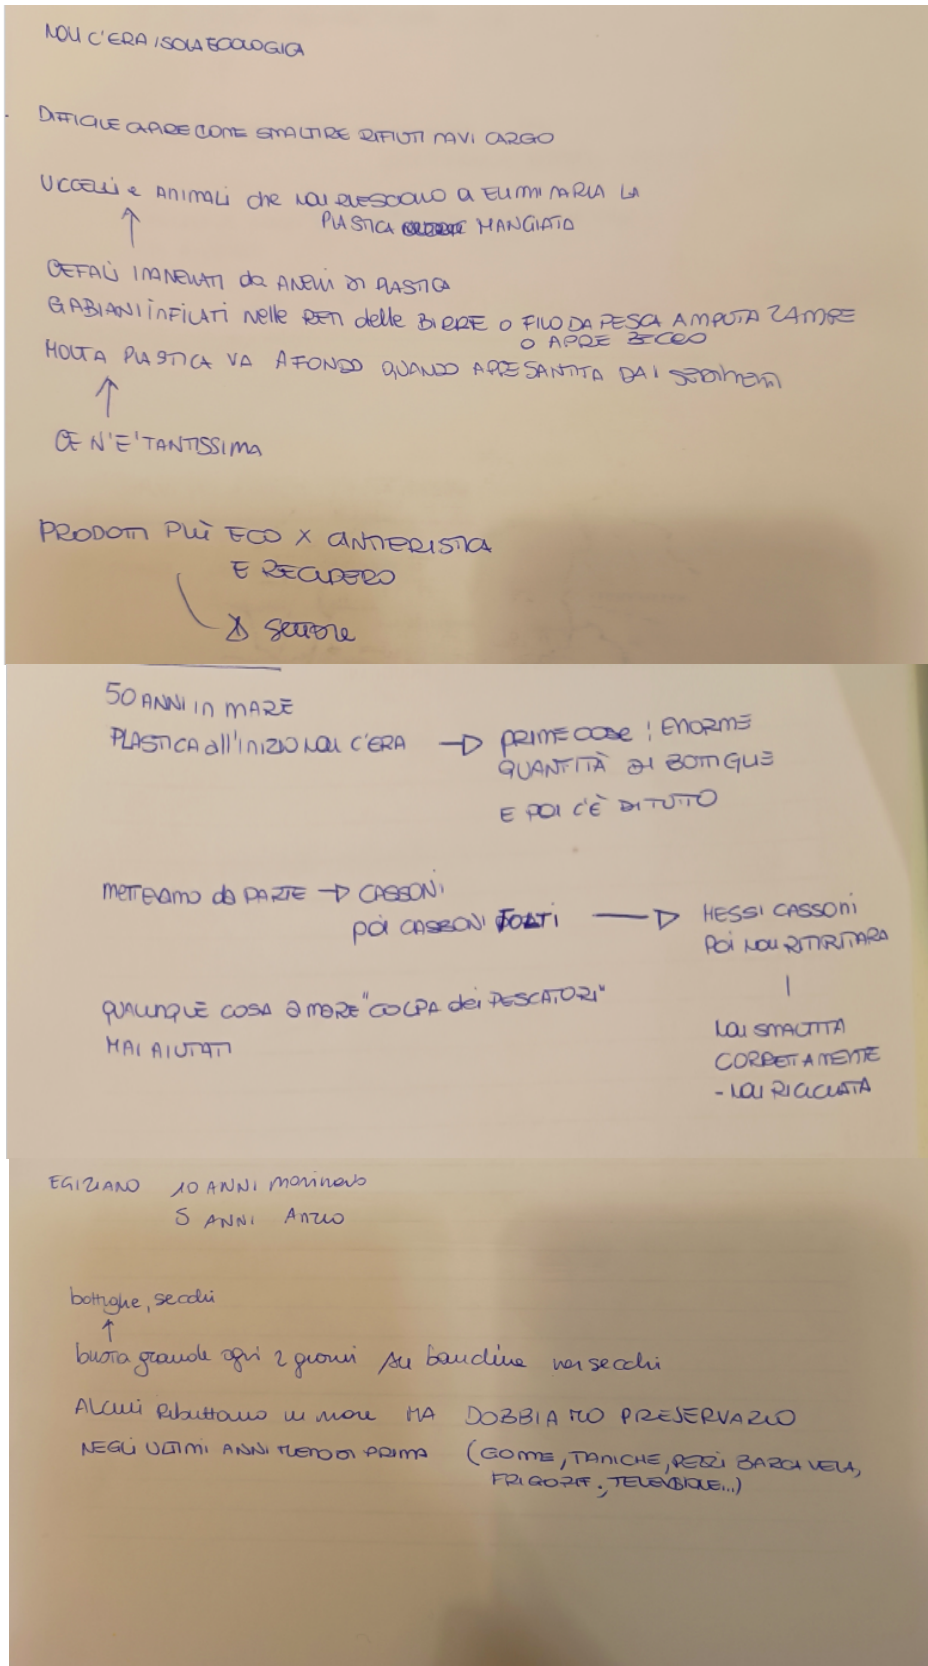 NON C'ERA ISOLA ECOLOGICA
DIFFICILE CAPIRE COME SMALTIRE RIFIUTI NAVI CARGO
UCCELLI e ANIMALI che NON RIESCONO a ELIMINARLA LA
PLASTICA MANGIATA
↑
CEFALI INANELLATI da ANELLI DI PLASTICA
GABIANI iNFILATI Nelle RETI delle BIRRE O FILO DA PESCA AMPUTA ZAMPE
O APRE BECCO
MOLTA PLASTICA VA A FONDO QUANDO APPESANTITA DAI SEDIMENTI
↑
CE N'E' TANTISSIMA
PRODOTTI PIÙ ECO X CANTIERISTICA
E RECUPERO
settore
50 ANNI in MARE
PLASTICA all'INIZIO NON C'ERA → PRIME COSE: ENORME
QUANTITÀ DI BOTTIGLIE
E POI C'È DI TUTTO
METTEVAMO da PARTE → CASSONI
poi CASSONI → MESSI CASSONI
POI NON
QUALUNQUE COSA a MARE "COLPA dei PESCATORI"
MAI AIUTATI
NON SMALTITA
CORRETAMENTE
- NON RICICLATA
EGIZIANO 10 ANNI marinaio
5 ANNI ANZIO
bottiglie, secchi
↑
busta grande ogni 2 giorni su banchina nei secchi
ALCUNI Ributtano in mare MA DOBBIAMO PRESERVARLO
NEGLI ULTIMI ANNI MENO DI PRIMA (GOMME, TANICHE, PEZZI BARCA VELA,
FRIGORIF., TELEVISIONE...)